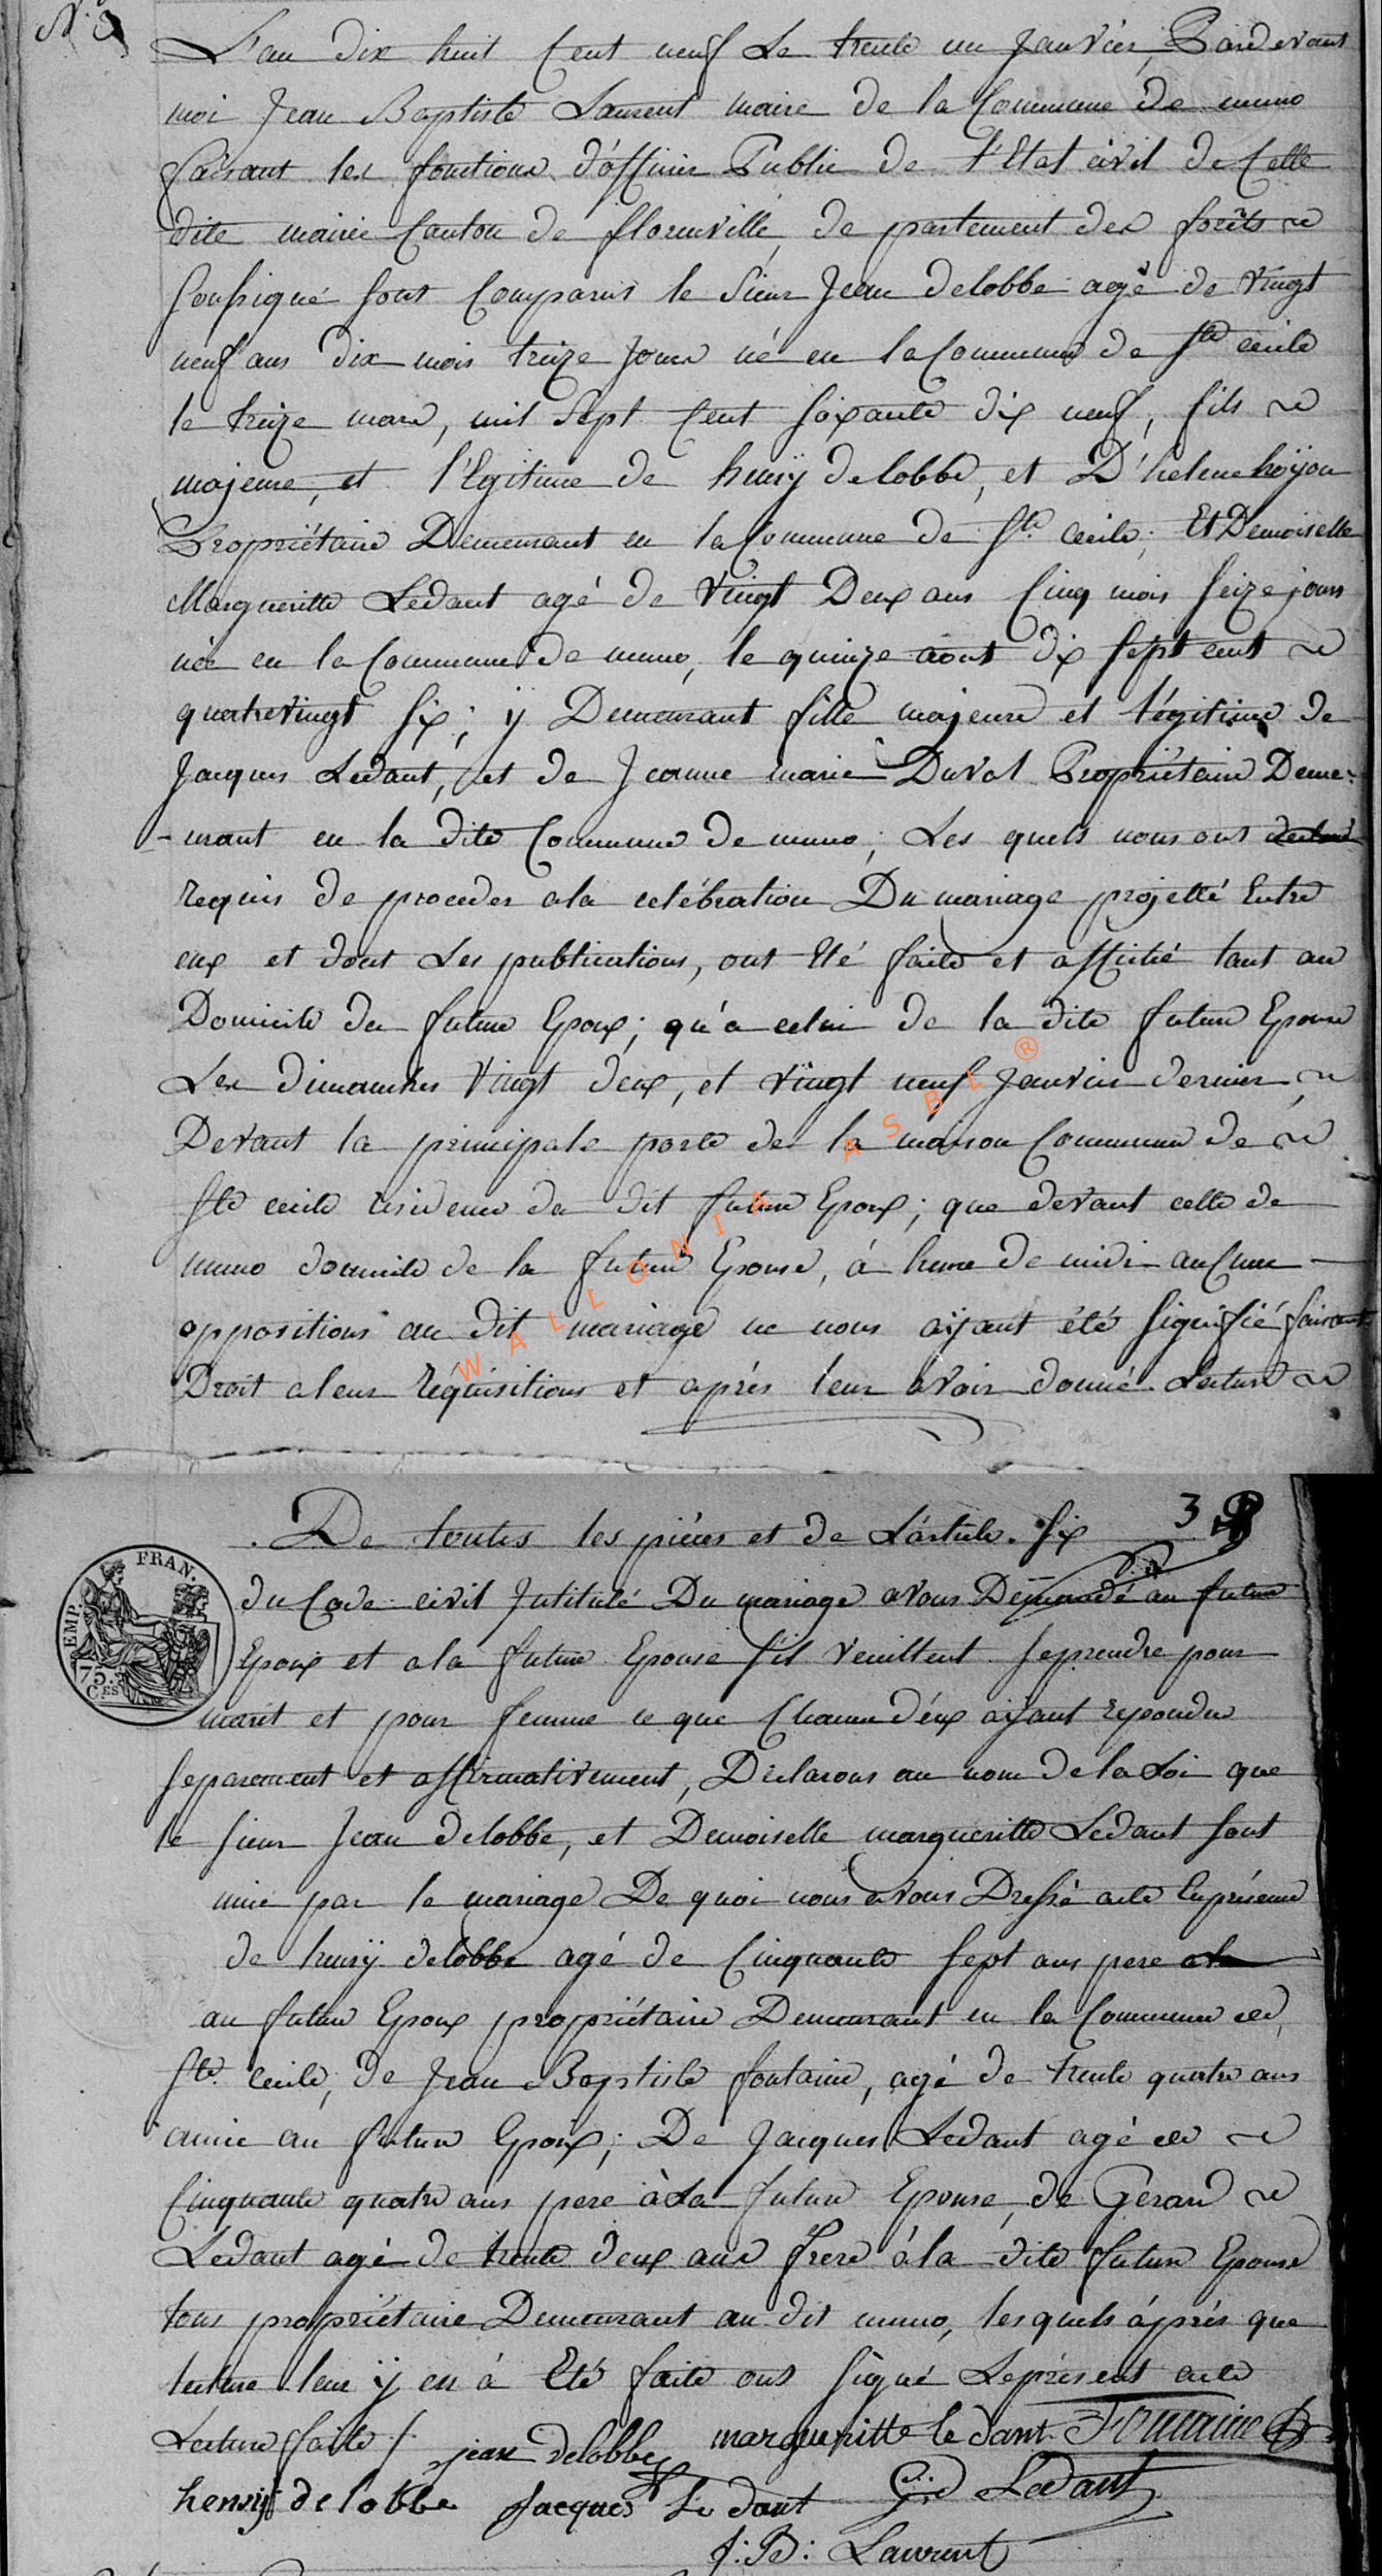 N.° 3
L'an dix huit Cent neuf Le trente un Janvier, Pardevant
moi Jean Baptiste Laurent maire de la Commune de muno
faisant les fonctions d'officier Public de l'Etat civil de Celle
dite mairie Canton de florenville, departement des forêts
Soussigné sont Comparus le Sieur Jean delobbe agé de vingt
neuf ans dix mois treize Jours né en la Commune de Ste cecile
le treize mars, mil Sept Cent Soixante dix neuf, fils
majeure, et l'Egitime de henry delobbe, et D'helene hoÿon
Propriétaire Demeurant en la Commune de Ste. Cecile; Et Demoiselle
Margueritte Ledant agé de Vingt Deux ans Cinq mois Seize jours
née en la Commune de muno, le quinze aout dix Sept cent
quatrevingt Six; ÿ Demeurant fille majeure et l'égitime de
Jacques Ledant, et de Jeanne marie Duval Propriétaire Deme-
-urant en la dite Commune de muno; Les quels nous ont
requis de proceder ala celébration Du mariage projetté Entre
eux et dont Les publications, ont Eté faite et affiché tant au
Domicile du future Epoux; qu'a celui de la dite future Epouse
Les dimanches Vingt deux, et vingt neuf Janvier dernier
Devant la principale porte de la maison Commune de
Ste cecile residence du dit future Epoux; que devant celle de
muno domicile de la future Epouse, á heure de midi aucune
oppositions au dit mariage ne nous aÿant été Signifié faisant
Droit a leur réquisitions et aprés leur avoir donné Lecture
De toutes les piéces et de L'article Six 3
du Code civil Intitulé Du mariage avons Demandé au future
Epoux et ala future Epouse S'il veuillent Seprendre pour
marit et pour femme ce que Chacun d'éux aÿant repondu
Separement et affirmativement, Déclarons au nom de la Loi que
le Sieur Jean delobbe, et Demoiselle margueritte Ledant Sont
unie par le mariage De quoi nous avons Dressé acte Enprésence
de henrÿ delobbe agé de Cinquante Sept ans pere
au futur Epoux propriétaire Demeurant en la Commune de
Ste. Cecile, de Jean Baptiste fontaine, agé de trente quatre ans
amie au futur Epoux; De Jacques Ledant agé de
Cinquante quatre ans pere àLa future Epouse, de Gérard
Ledant agé de trente deux ans frere á la dite future Epouse
tous propriétaire Demeurant au dit muno, les quels áprés que
lecture leur ÿ en à Eté faite ont Signé Leprésent acte
Lecture faite /. jean delobbe margueritte le dant Fontaine
henrij de lobbe Jacques Le dant Gd Ledant
J: B: Laurent
EMP. FRAN.
75 C.ES
WALLONIA ASBL ®